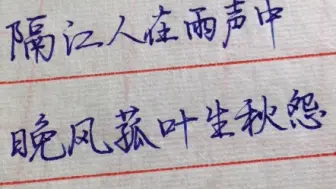 隔江人在雨声中
晚风菰叶生秋怨